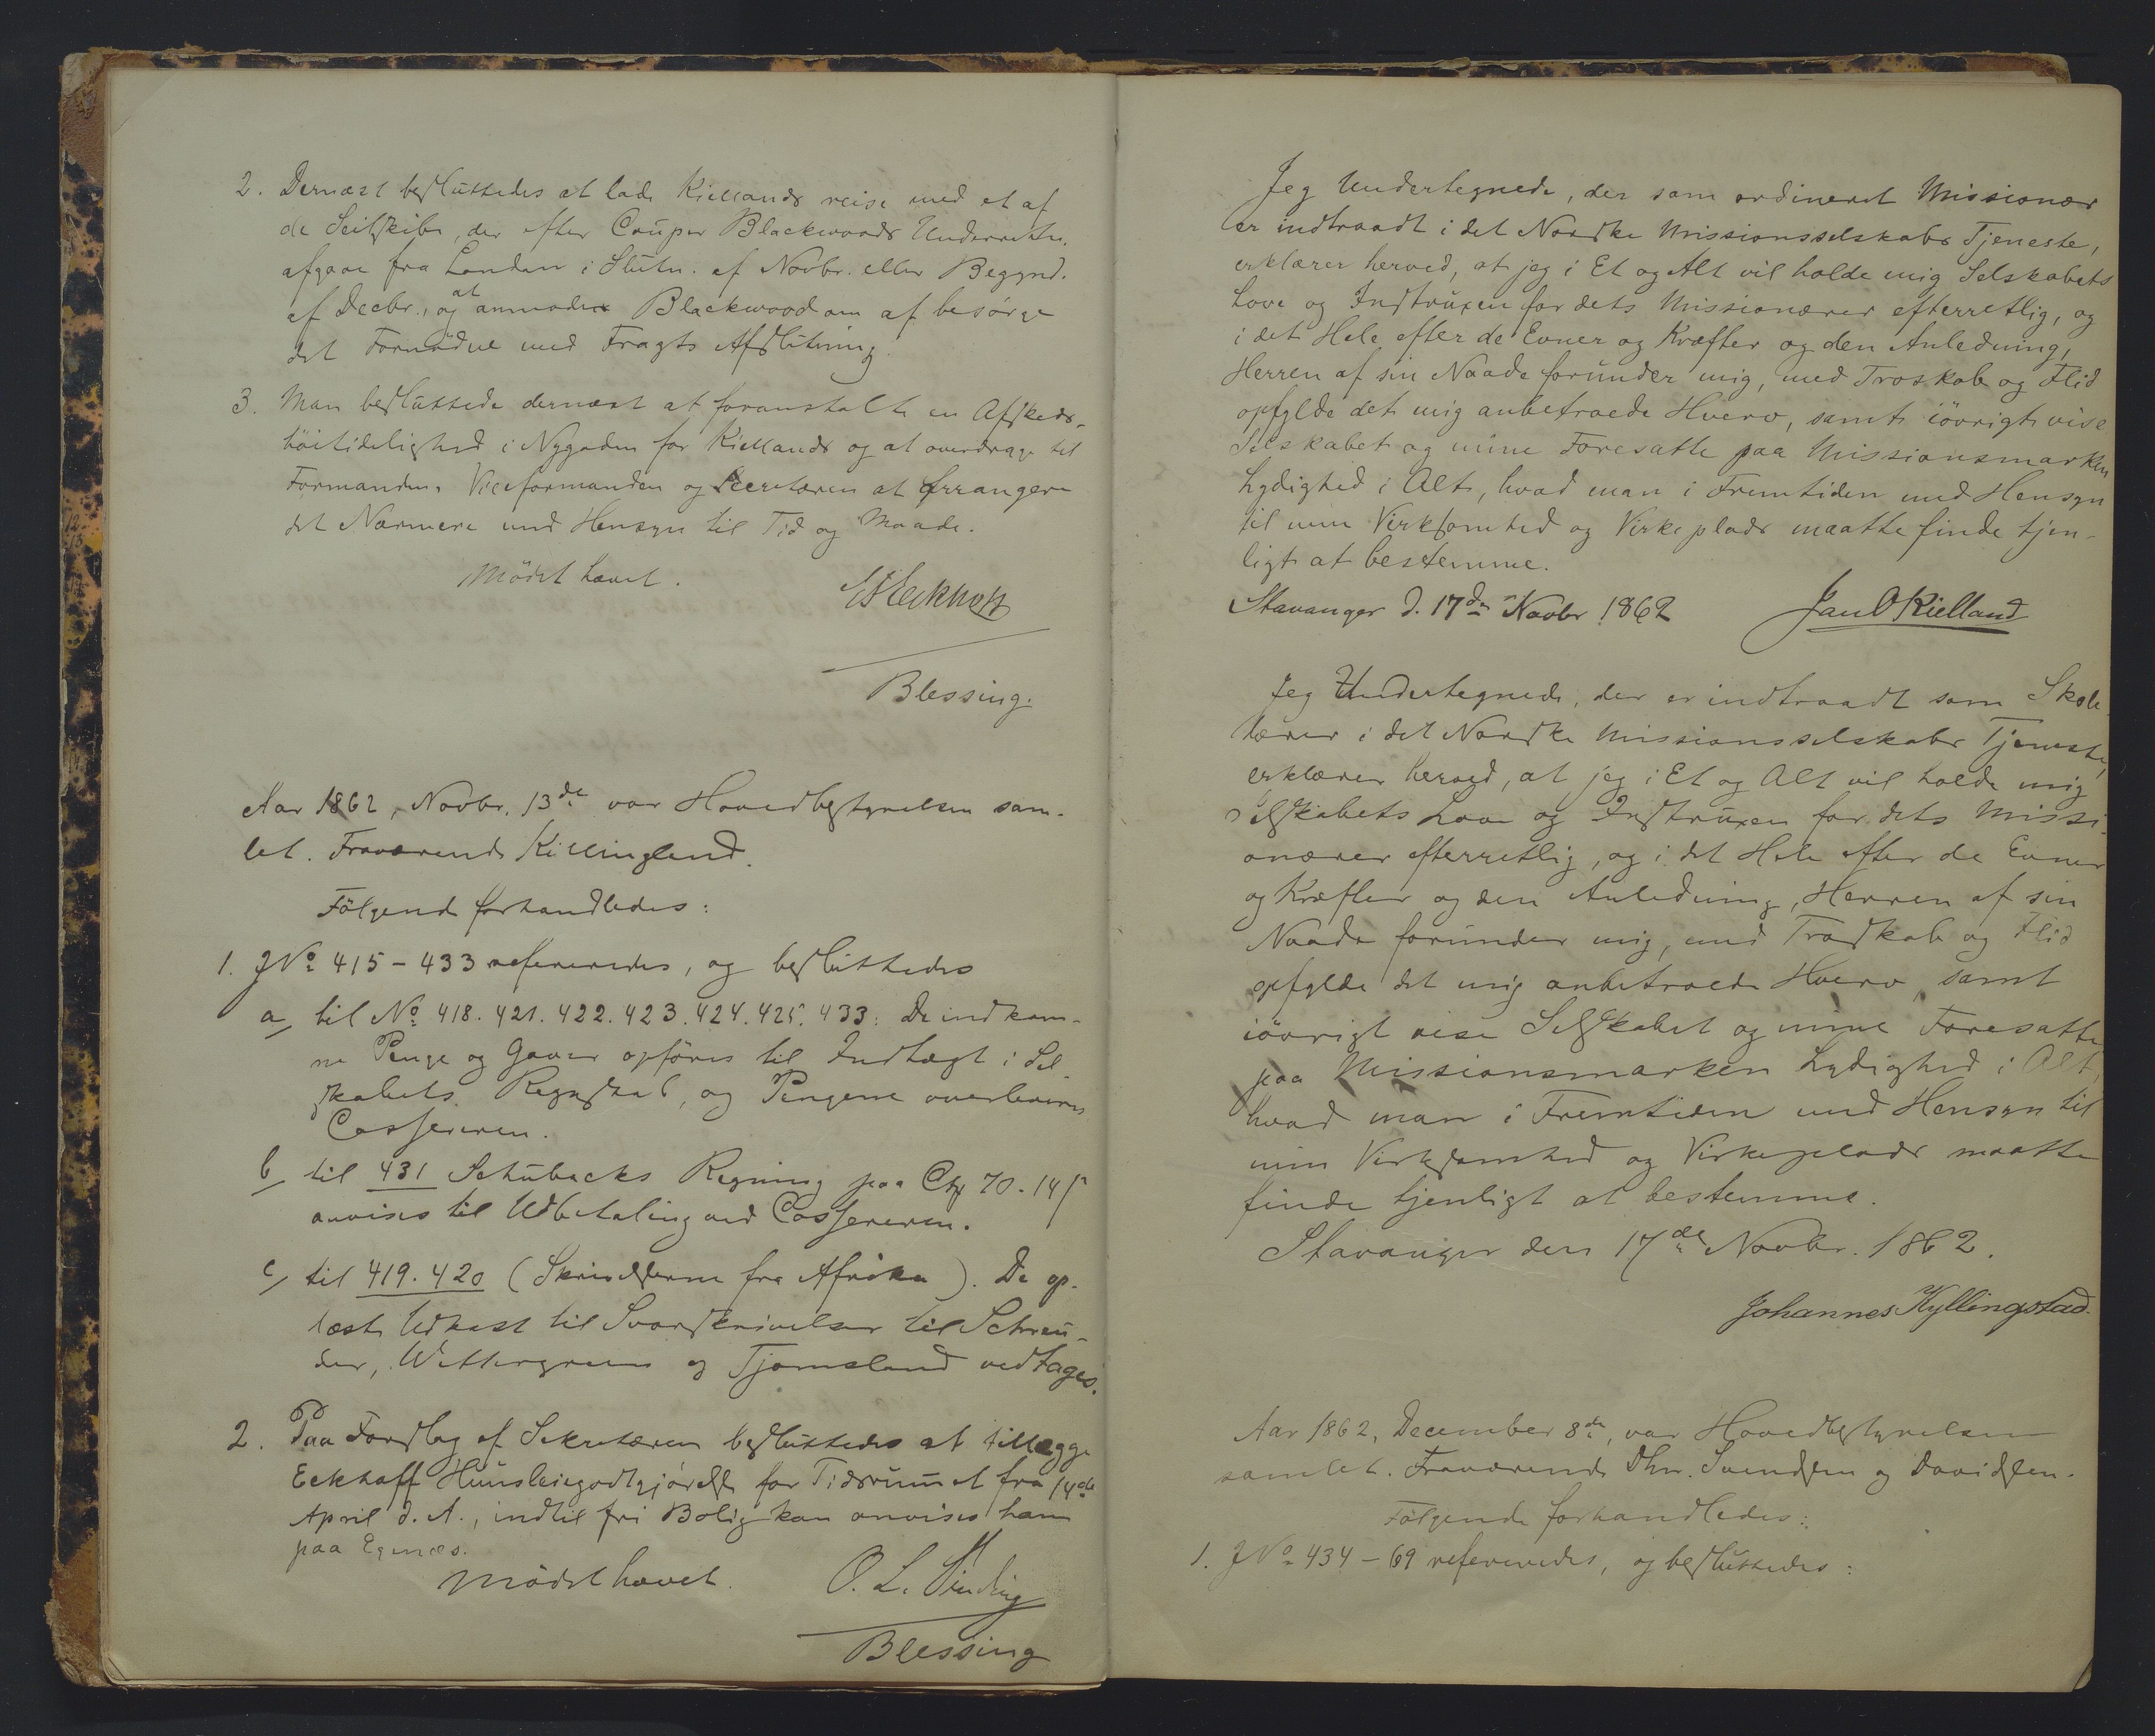 2. Dernæst besluttedes at lade Kiellands reise med et af
de Seilskibe, der efter Couper Blackwoods Underretn.
afgaae fra London i Slutn. af Novbr. eller Begynd.
af Decbr., og at anmode Blackwood om at besørge
det Fornødne med Fragts Afslutning.
3. Man besluttede dernæst at foranstalte en Afskeds-
høitidelighed i Nygaden for Kiellands og at overdrage til
Formanden, Viceformanden og Secretæren at arrangere
det Nærmere med Hensyn til Tid og Maade.
Mødet hævet.
Eckhoff
Blessing.
Aar 1862, Novbr. 13de var Hovedbestyrelsen sam-
let. Fraværende Killingland.
Følgende forhandledes:
1. J No 415-433 refereredes, og besluttedes
a, til No 418. 421. 422. 423. 424. 425. 433: De indkom-
ne Penge og Gaver opføres til Indtægt i Sel
skabets Regnskab, og Pengene overleveres
Cassereren.
b, til 431 Schubacks Regning paa 70. 14 ß
anvises til Udbetaling ved Cassereren.
c, til 419. 420 (Skrivelserne fra Afrika). De op-
læste Udkast til Svarskrivelser til Schreu-
der, Wettergreen og Tjomsland vedtages.
2. Paa Forslag af Sekretæren besluttedes at tillægge
Eckhoff Huusleiegodtgjørelse for Tidsrummet fra 14de
April d. A., indtil fri Bolig kan anvises ham
paa Egenæs.
Mødet hævet.
O. L. Sinding
Blessing
Jeg Undertegnede, der som ordineret Missionær
er indtraadt i det Norske Missionsselskabs Tjeneste,
erklærer herved, at jeg i Et og Alt vil holde mig Selskabets
Love og Instruxen for dets Missionærer efterretlig, og
i det Hele efter de Evner og Kræfter og den Anledning,
Herren af sin Naade forunder mig, med Troskab og Flid
opfylde det mig anbetroede Hverv, samt iøvrigt vise
Selskabet og mine Foresatte paa Missionsmarken
Lydighed i Alt, hvad man i Fremtiden med Hensyn
til min Virksomhed og Virkeplads maatte finde tjen-
ligt at bestemme.
Stavanger d. 17de Novbr 1862 Jan O Kielland
Jeg Undertegnede, der er indtraadt som Skole-
lærer i det Norske Missionsselskabs Tjeneste,
erklærer herved, at jeg i Et og Alt vil holde mig
Selskabets Love og Instruxen for dets Missi-
onærer efterretlig, og i det Hele efter de Evner
og Kræfter og den Anledning, Herren af sin
Naade forunder mig, med Troskab og Flid
opfylde det mig anbetroede Hverv, samt
iøvrigt vise Selskabet og mine Foresatte
paa Missionsmarken Lydighed i Alt,
hvad man i Fremtiden med Hensyn til
min Virksomhed og Virkeplads maatte
finde tjenligt at bestemme.
Stavanger den 17de Novbr. 1862.
Johannes Kyllingstad.
Aar 1862, December 8de, var Hovedbestyrelsen
samlet. Fraværende Dhr. Svendsen og Davidsen.
Følgende forhandledes:
1. J No 434-69 refereredes, og besluttedes: